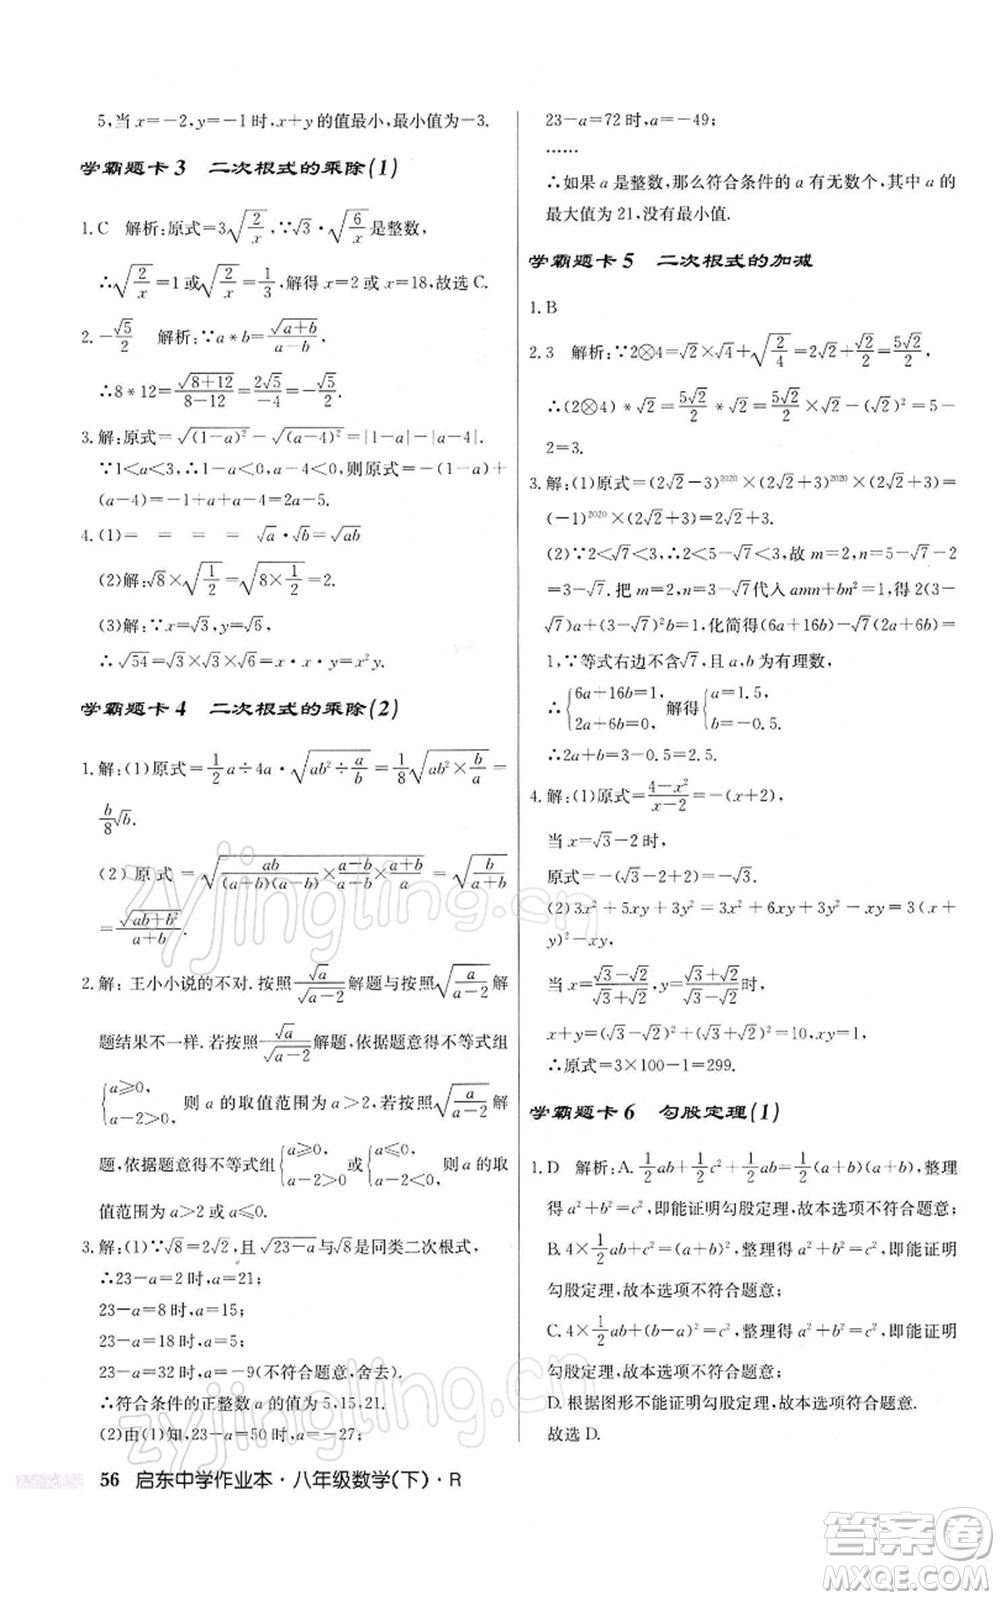 5,当 x=-2,y=-1 时,x+y 的值最小,最小值为-3.
学霸题卡 3 二次根式的乘除(1)
1.C 解析:原式=3√(2/x),∵√3·√(6/x)是整数,
∴√(2/x)=1或√(2/x)=√(1/3),解得 x=2或 x=18,故选 C.
2.-√5/2 解析:∵a*b=√(a+b)/(a-b),
∴8*12=√(8+12)/(8-12)=2√5/(-4)=-√5/2.
3.解:原式=√((1-a)²)-√((a-4)²)=|1-a|-|a-4|.
∵1<a<3,∴1-a<0,a-4<0,则原式=-(1-a)+
(a-4)=-1+a+a-4=2a-5.
4.(1)= = = = √a·√b=√ab
(2)解:√8×√(1/2)=√(8×1/2)=√4=2.
(3)解:∵x=√3,y=√6,
∴√54=√3×√3×√6=x·x·y=x²y.
学霸题卡 4 二次根式的乘除(2)
1.解:(1)原式=1/2 a÷4a·√(ab²÷a/b)=1/8√(ab²×b/a)=
b/8 √b.
(2)原式=√(ab/((a+b)(a-b))×(a-b)/a×(a+b)/a)=√(b/(a+b))
=√(ab+b²)/(a+b).
2.解:王小小说的不对.按照√a/√(a-2)解题与按照√(a/(a-2))解
题结果不一样.若按照√a/√(a-2)解题,依据题意得不等式组
{a≥0, a-2>0, 则 a 的取值范围为 a>2,若按照√(a/(a-2))解
题,依据题意得不等式组{a≥0, a-2>0或{a≤0, a-2<0则 a 的取
值范围为 a>2或 a≤0.
3.解:(1)∵√8=2√2,且√(23-a)与√8是同类二次根式,
∴23-a=2时,a=21;
23-a=8时,a=15;
23-a=18时,a=5;
23-a=32时,a=-9(不符合题意,舍去).
∴符合条件的正整数 a 的值为 5,15,21.
(2)由(1)知,23-a=50时,a=-27;
23-a=72时,a=-49;
……
∴如果 a 是整数,那么符合条件的 a 有无数个,其中 a 的
最大值为 21,没有最小值.
学霸题卡 5 二次根式的加减
1.B
2.3 解析:∵2⊗4=√2×√4+√(2/4)=2√2+√2/2=5√2/2,
∴(2⊗4)*√2=5√2/2*√2=5√2/2×√2-(√2)²=5-
2=3.
3.解:(1)原式=(2√2-3)²⁰²⁰×(2√2+3)²⁰²⁰×(2√2+3)=
(-1)²⁰²⁰×(2√2+3)=2√2+3.
(2)∵2<√7<3,∴2<5-√7<3,故 m=2,n=5-√7-2
=3-√7.把 m=2,n=3-√7代入 amn+bn²=1,得 2(3-
√7)a+(3-√7)²b=1,化简得(6a+16b)-√7(2a+6b)=
1,∵等式右边不含√7,且 a,b 为有理数,
∴{6a+16b=1, 2a+6b=0, 解得{a=1.5, b=-0.5.
∴2a+b=3-0.5=2.5.
4.解:(1)原式=(4-x²)/(x-2)=-(x+2),
当 x=√3-2时,
原式=-(√3-2+2)=-√3.
(2)3x²+5xy+3y²=3(x²+2xy+y²)-xy=3(x+
y)²-xy,
当 x=(√3-√2)/(√3+√2),y=(√3+√2)/(√3-√2)时,
x+y=(√3-√2)²+(√3+√2)²=10,xy=1,
∴原式=3×100-1=299.
学霸题卡 6 勾股定理(1)
1.D 解析:A.1/2 ab+1/2 c²+1/2 ab=1/2(a+b)(a+b),整理
得 a²+b²=c²,即能证明勾股定理,故本选项不符合题意;
B.4×1/2 ab+c²=(a+b)²,整理得 a²+b²=c²,即能证明
勾股定理,故本选项不符合题意;
C.4×1/2 ab+(b-a)²=c²,整理得 a²+b²=c²,即能证明
勾股定理,故本选项不符合题意;
D.根据图形不能证明勾股定理,故本选项符合题意.
故选 D.
56 启东中学作业本·八年级数学(下)·R
zyjingling.cn
zyjingling.cn
答案圈
MXQE.COM